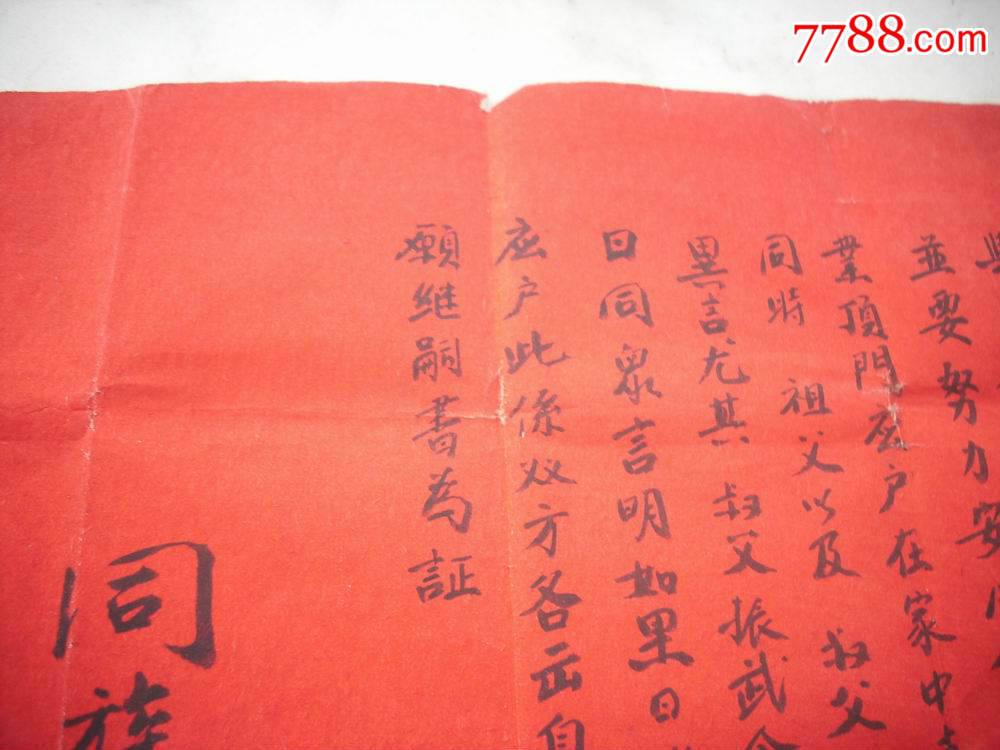 7788.com
並要努力安
業頂門应户在家中
同時 祖父以及 叔父
異言尤其 叔父振武
日同眾言明如果日
应户此係双方各出自
願继嗣書為証
同族